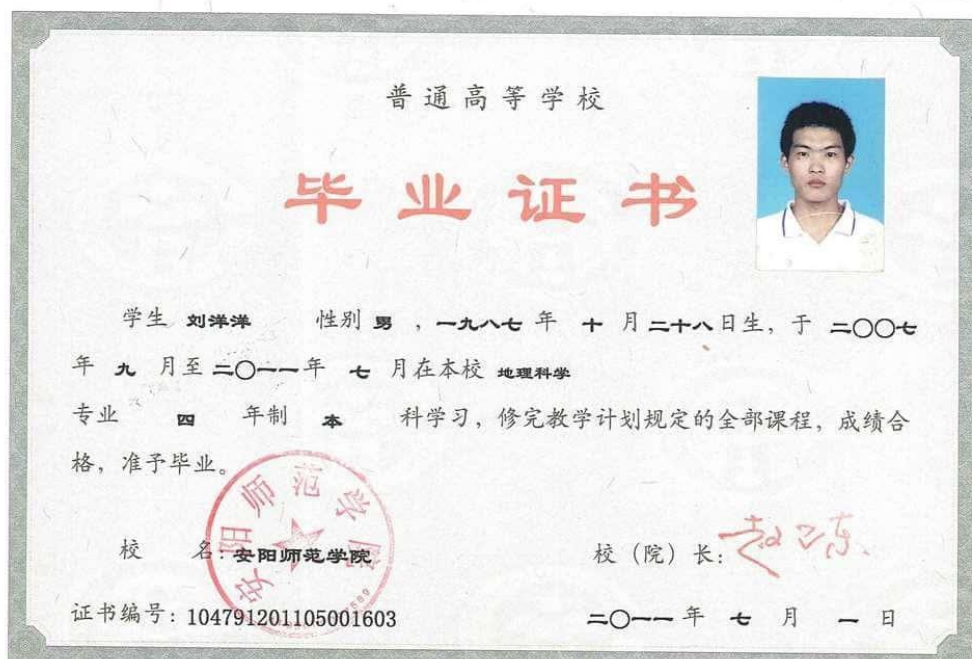 普通高等学校
毕业证书
学生 刘洋洋 性别 男 ，一九八七 年 十 月 二十八 日生，于 二〇〇七
年 九 月至 二〇一一 年 七 月在本校 地理科学
专业 四 年制 本 科学习，修完教学计划规定的全部课程，成绩合
格，准予毕业。
安阳师范学院
校 名：安阳师范学院 校（院）长：
证书编号：104791201105001603 二〇一一 年 七 月 一 日